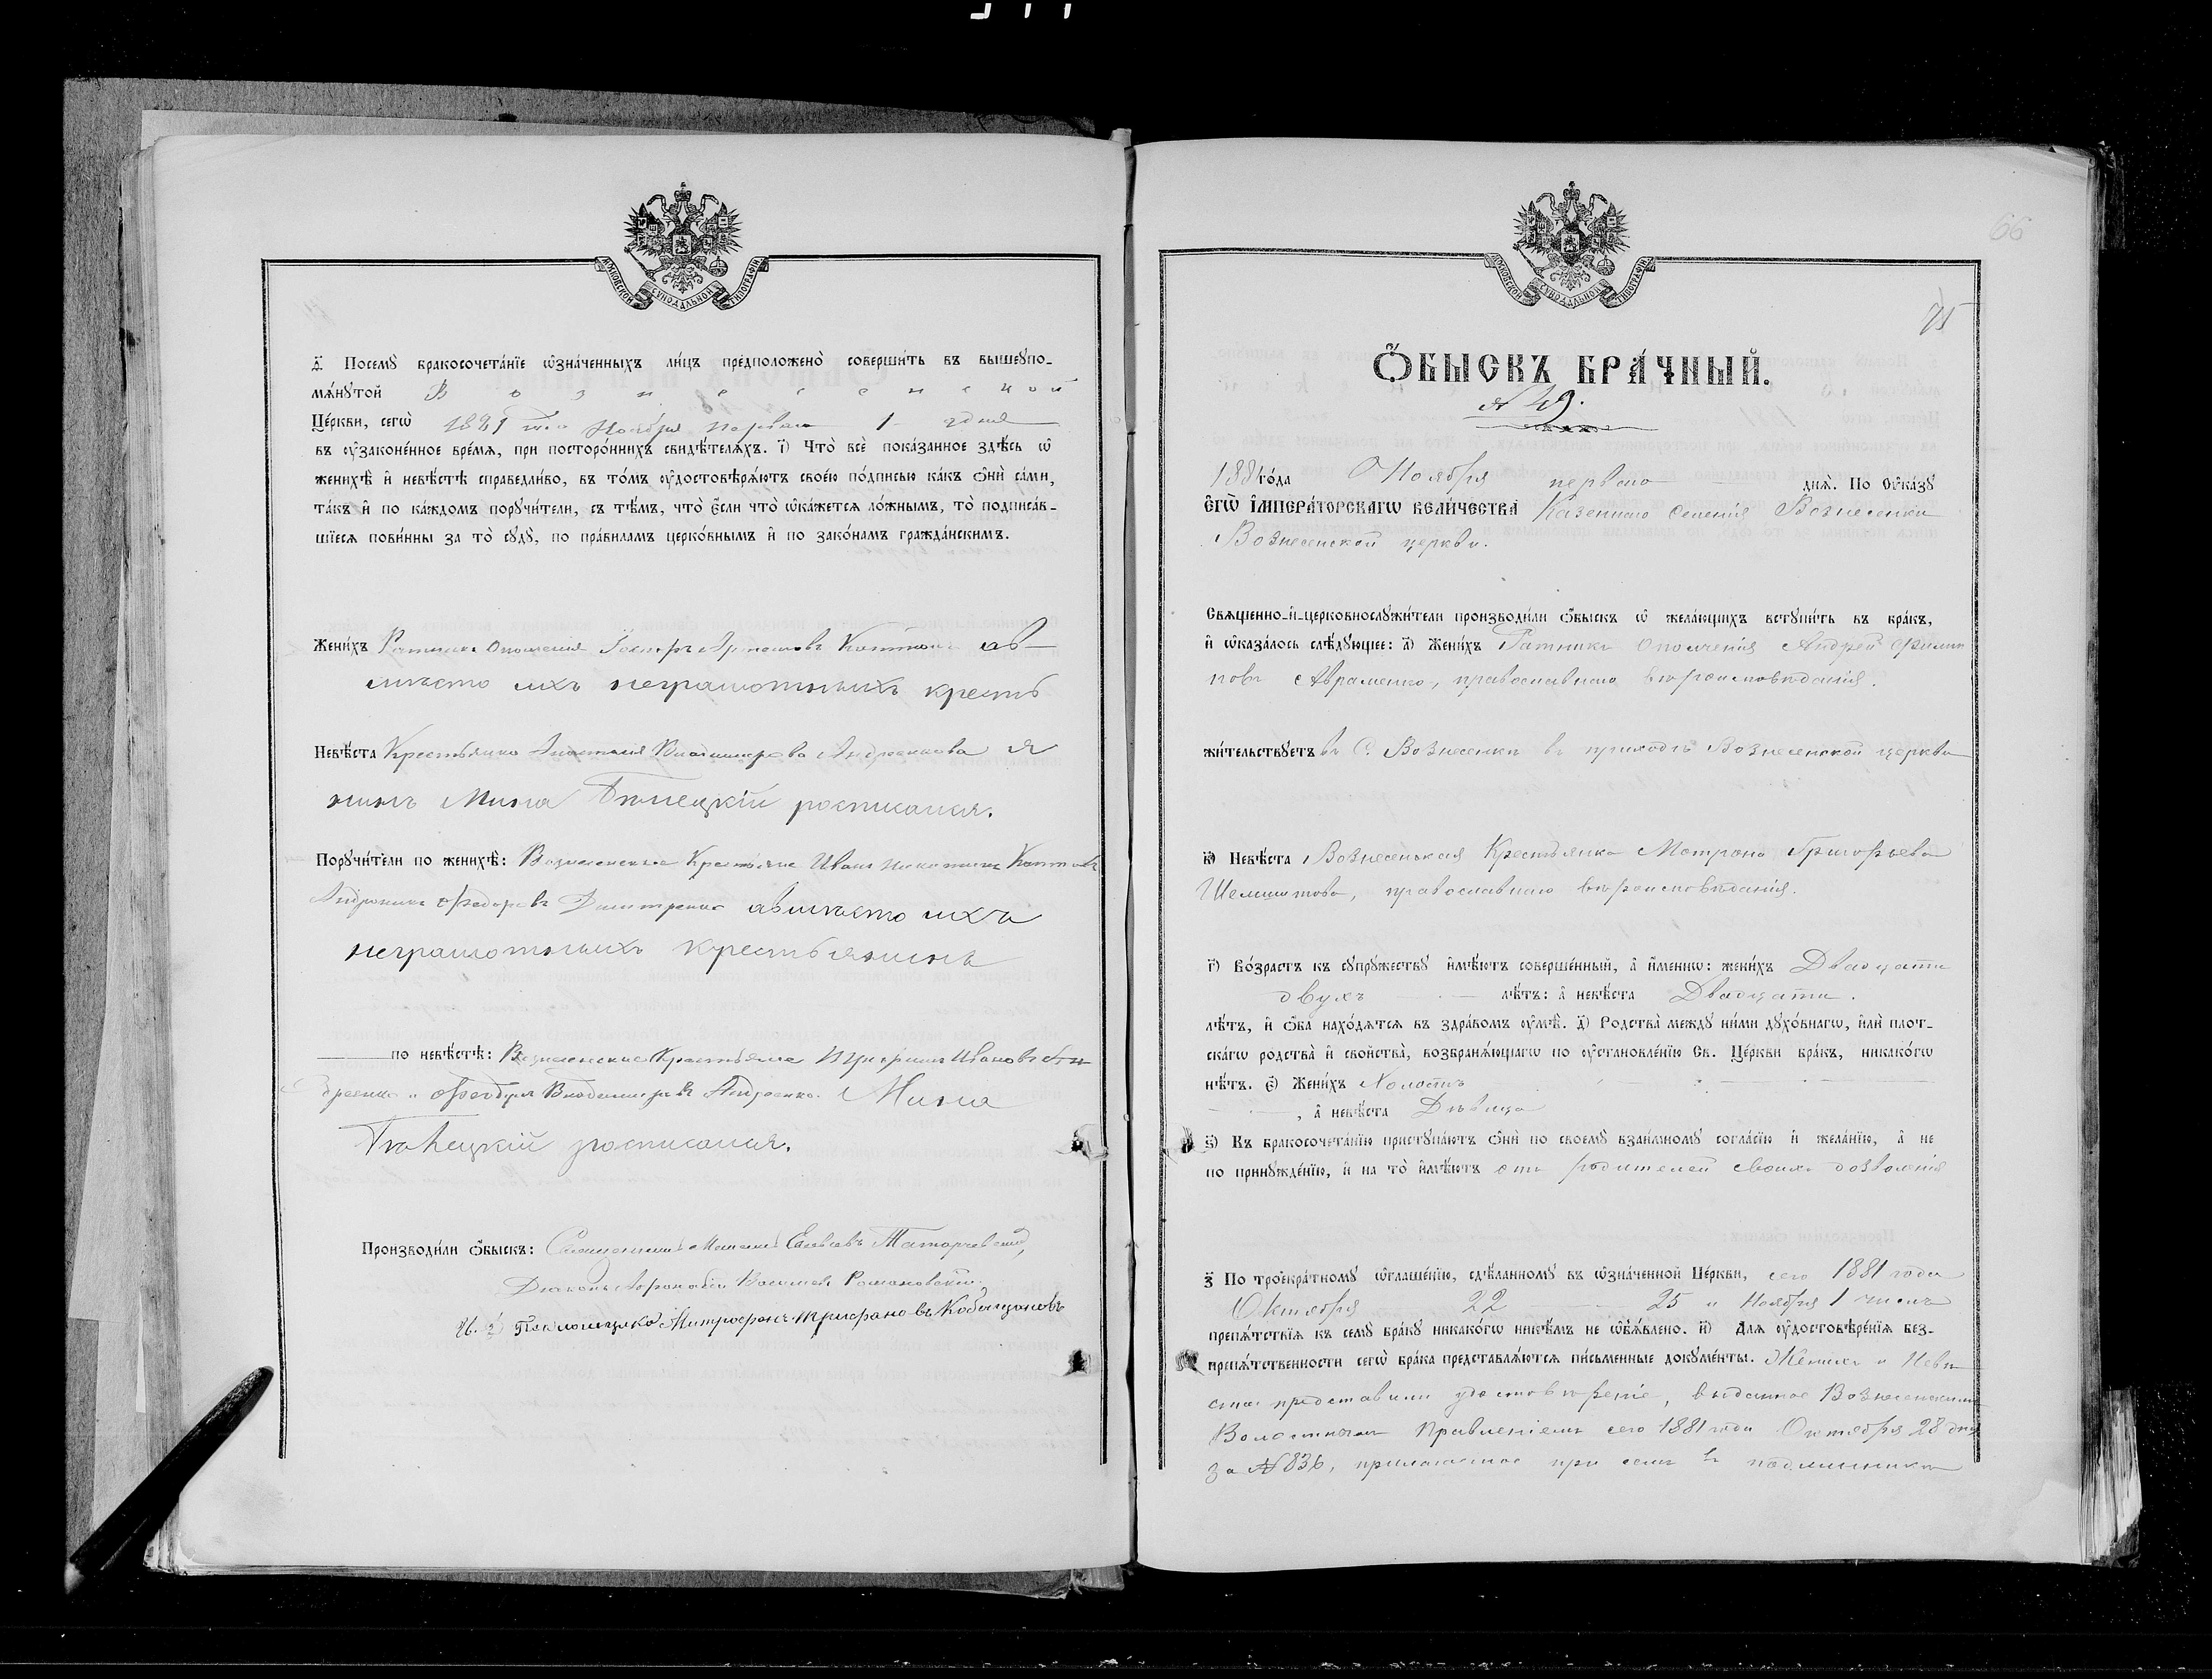 МОСКОВСКОЙ СѴНОДАЛЬНОЙ ТИПОГРАФІИ
д҃ Посемꙋ бракосочета́нїе ѡ҆зна́ченныхъ ли́цъ предположено̀ соверши́ть въ вышеꙋпо-
мѧ́нꙋтой Вознесенской
Це́ркви, сегѡ̀ 1881 го Ноября перваго 1 дня
въ ᲂу҆зако́ненное вре́мѧ, при посторо́ннихъ свидѣ́телѧхъ. і҃) Что̀ всѐ пока́занное здѣ́сь ѡ҆
женихѣ̀ и҆ невѣ́стѣ справедли́во, въ то́мъ ᲂу҆достовѣрѧ́ютъ свое́ю по́дписью ка́къ ѻ҆нѝ са́ми,
та́къ и҆ по ка́ждомъ порꙋчи́тели, съ тѣ́мъ, что̀ є҆́сли что̀ ѡ҆ка́жетсѧ ло́жнымъ, то̀ подписа́в-
шїесѧ пови́нны за то̀ сꙋдꙋ̀, по пра́виламъ церко́внымъ и҆ по зако́намъ гражда́нскимъ.
Жени́хъ Ратникъ Ополченія
вмѣсто ихъ неграмотныхъ кресть
Невѣ́ста Крестьянка Владимирова Андреенкова я
нинъ Мина росписался.
Порꙋчи́тели по женихѣ̀: Вознесенскіе Крестьяне Иванъ
Федоровъ Дмитренко а вмѣсто ихъ
неграмотныхъ крестьянинъ
по невѣ́стѣ: Вознесенскіе Крестьяне Ивановъ Ан
дреенко и Федоръ Владимировъ Андреенко. Мина
росписался.
Производи́ли ѻ҆́быскъ: Священникъ
Діаконъ Василіевъ Романовскій.
Митрофанъ
МОСКОВСКОЙ СѴНОДАЛЬНОЙ ТИПОГРАФІИ
66
75
Ѻ҆́БЫСКЪ БРА́ЧНЫЙ.
№ 49.
1881 го́да Ноября перваго днѧ̀. По Оу҆ка́зꙋ
Є҆ГѠ̀ И҆МПЕРА́ТОРСКАГѠ ВЕЛИ́ЧЕСТВА Казеннаго Селенія Вознесенки
Вознесенской церкви.
Свѧще́нно-и҆-церковнослꙋжи́тели производи́ли ѻ҆́быскъ ѡ҆ жела́ющихъ встꙋпи́ть въ бра́къ,
и҆ ѡ҆каза́лось слѣ́дꙋющее: а҃) Жени́хъ Ратникъ ополченія Андрей Филип
повъ Авраменко, православнаго вѣроисповѣданія.
жи́тельствꙋетъ въ С. Вознесенкѣ въ приходѣ Вознесенской церкви
в҃) Невѣ́ста Вознесенская Крестьянка Матрона Григорьева
православнаго вѣроисповѣданія.
г҃) Во́зрастъ къ сꙋпрꙋ́жествꙋ и҆мѣ́ютъ соверше́нный, а҆ и҆́меннѡ: жени́хъ Двадцати
двухъ лѣ́тъ: а҆ невѣ́ста Двадцати.
лѣ́тъ, и҆ ѻ҆́ба нахо́дѧтсѧ въ здра́вомъ ᲂу҆мѣ̀. д҃) Родства̀ междꙋ ни́ми дꙋхо́внагѡ, и҆лѝ плот-
ска́гѡ родства̀ и҆ свойства̀, возбранѧ́ющагѡ по ᲂу҆становле́нїю Св. Це́ркви бра́къ, никако́гѡ
нѣ́тъ. є҃) Жени́хъ Холостъ
, а҆ невѣ́ста Дѣвица
ѕ҃) Къ бракосочета́нїю пристꙋпа́ютъ ѻ҆нѝ по своемꙋ̀ взаи́мномꙋ согла́сїю и҆ жела́нїю, а҆ не
по принꙋжде́нїю, и҆ на то̀ и҆мѣ́ютъ отъ родителей своихъ дозволенія
з҃ По трое́кратномꙋ ѡ҆глаше́нїю, сдѣ́ланномꙋ въ ѡ҆зна́ченной Це́ркви, сего 1881 года
Октября 22 25 и Ноября 1 чиселъ
препѧ́тствїѧ къ семꙋ̀ бра́кꙋ никако́гѡ никѣ́мъ не ѡ҆б̾ѧ́влено. и҃) Для ᲂу҆достовѣре́нїѧ без-
препѧ́тственности сегѡ̀ бра́ка представлѧ́ютсѧ пи́сьменные докꙋме́нты. Женихъ и Невѣ
ста представили удостовѣреніе, выданное Вознесенскимъ
Волостнымъ Правленіемъ сего 1881 года Октября 28 дня
за № 836, прилагаемое при семъ въ подлинникѣ